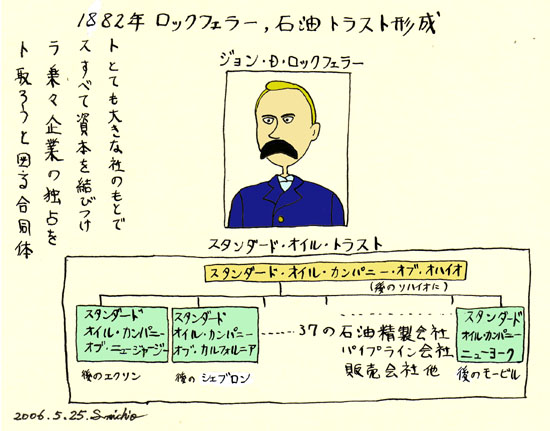 1882年 ロックフェラー,石油トラスト形成
ジョン・D・ロックフェラー
ト とても大きな社のもとで
ス すべて資本を結びつけ
ラ 楽々企業の独占を
ト 取ろうと図る合同体
スタンダード・オイル・トラスト
スタンダード・オイル・カンパニー・オブ・オハイオ
(後のソハイオに)
スタンダード
オイル・カンパニー
オブ・ニュージャージー
後のエクソン
スタンダード
オイル・カンパニー
オブ・カルフォルニア
後の シェブロン
……37の石油精製会社
パイプライン会社
販売会社 他
スタンダード
オイル・カンパニー
ニューヨーク
後のモービル
2006.5.25.Smichio